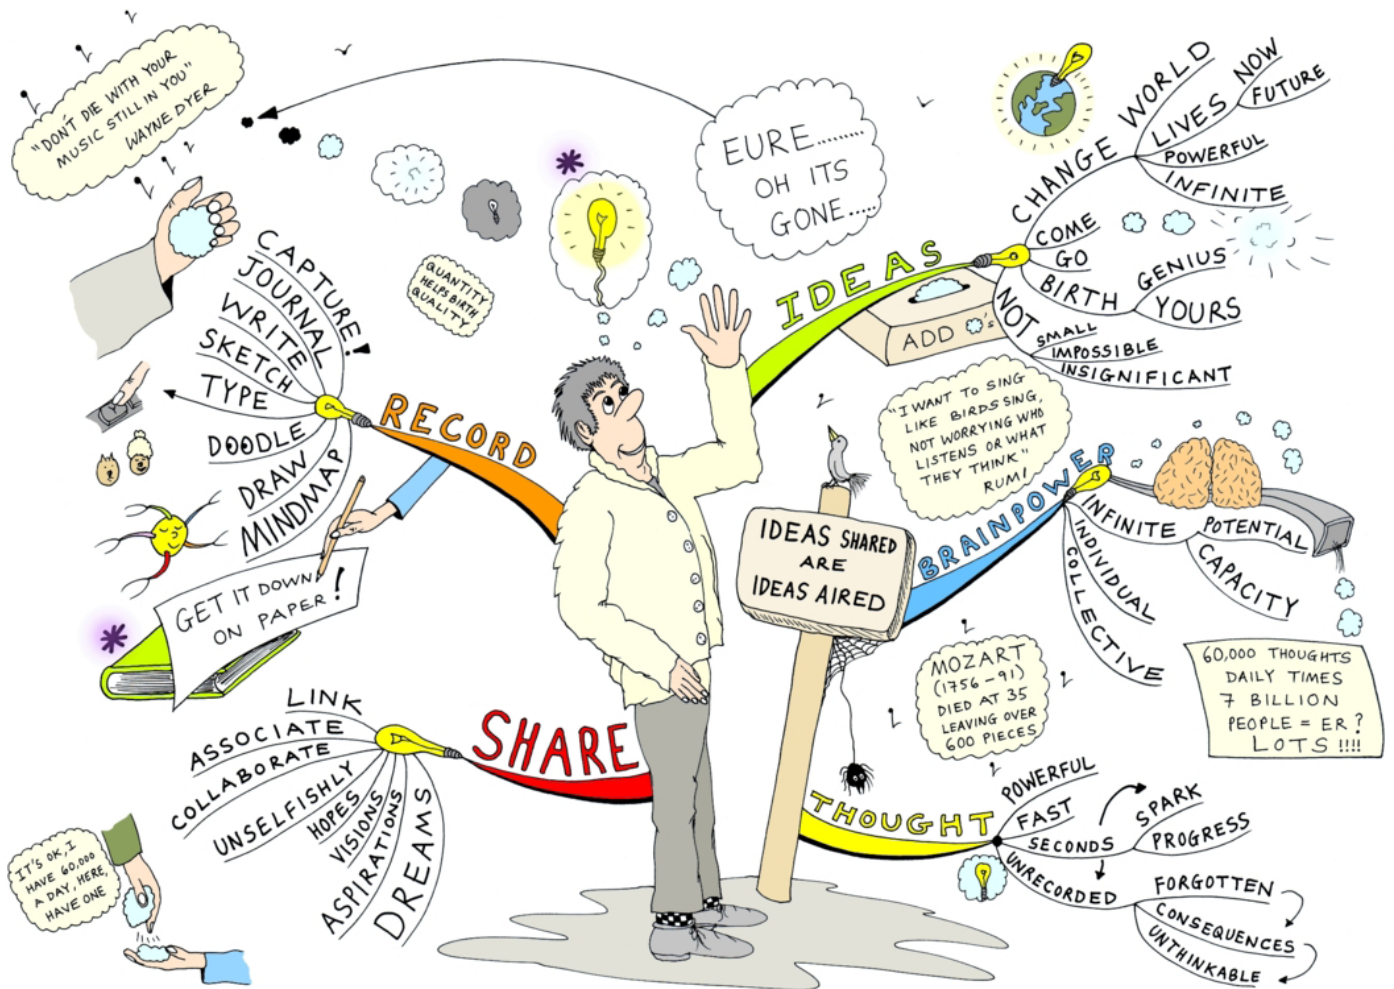 "DON'T DIE WITH YOUR
MUSIC STILL IN YOU"
WAYNE DYER
EURE........
OH ITS
GONE.....
QUANTITY
HELPS BIRTH
QUALITY
IDEAS
CHANGE
WORLD
LIVES
NOW
FUTURE
POWERFUL
INFINITE
COME
GO
BIRTH
GENIUS
YOURS
NOT
SMALL
IMPOSSIBLE
INSIGNIFICANT
ADD 's
RECORD
CAPTURE!
JOURNAL
WRITE
SKETCH
TYPE
DOODLE
DRAW
MINDMAP
GET IT DOWN
ON PAPER!
"I WANT TO SING
LIKE BIRDS SING,
NOT WORRYING WHO
LISTENS OR WHAT
THEY THINK"
RUMI
IDEAS SHARED
ARE
IDEAS AIRED
BRAINPOWER
INFINITE
POTENTIAL
CAPACITY
INDIVIDUAL
COLLECTIVE
60,000 THOUGHTS
DAILY TIMES
7 BILLION
PEOPLE = ER?
LOTS !!!!
MOZART
(1756-91)
DIED AT 35
LEAVING OVER
600 PIECES
SHARE
LINK
ASSOCIATE
COLLABORATE
UNSELFISHLY
HOPES
VISIONS
ASPIRATIONS
DREAMS
IT'S OK, I
HAVE 60,000
A DAY, HERE,
HAVE ONE
THOUGHT
POWERFUL
FAST
SECONDS
SPARK
PROGRESS
UNRECORDED
FORGOTTEN
CONSEQUENCES
UNTHINKABLE